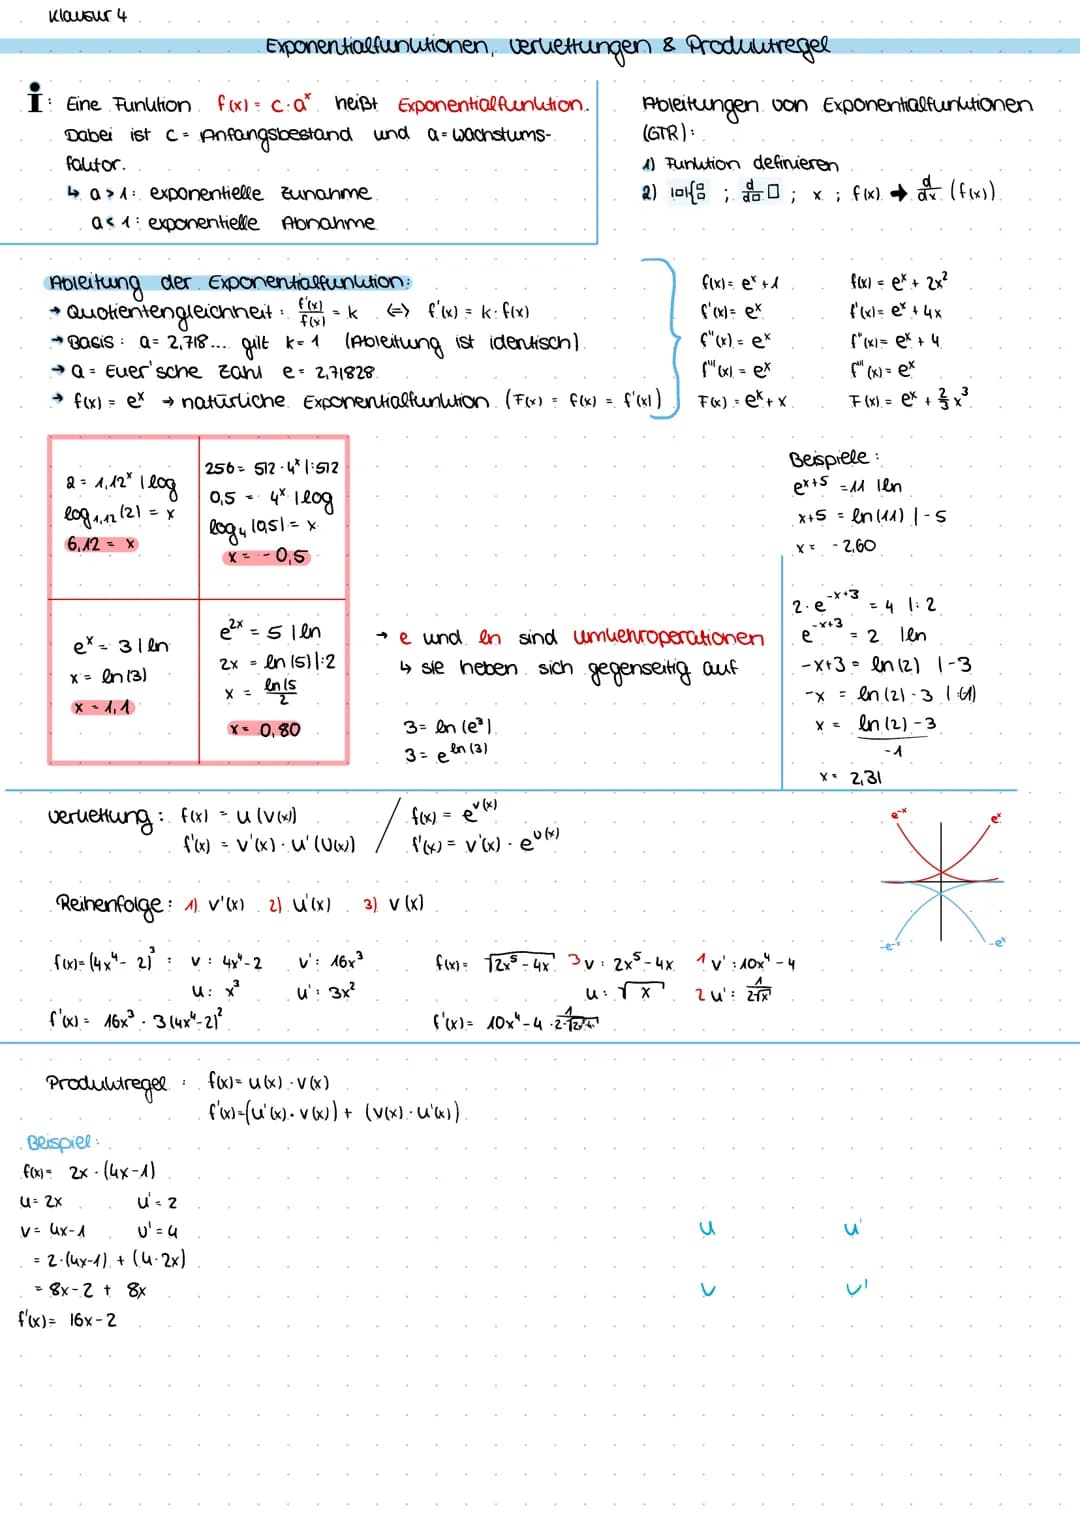 Klausur 4
Exponentialfunktionen, Verkettungen & Produktregel
i: Eine Funktion f(x) = c·aˣ heißt Exponentialfunktion.
Dabei ist c = Anfangsbestand und a = Wachstums-
faktor.
↳ a > 1: exponentielle Zunahme
a < 1: exponentielle Abnahme
Ableitungen von Exponentialfunktionen
(GTR):
1) Funktion definieren
2) ; d/d□ □ ; x ; f(x) → d/dx (f(x))
Ableitung der Exponentialfunktion:
→ Quotientengleichheit: f'(x)/f(x) = k ⇔ f'(x) = k·f(x)
→ Basis: a = 2,718... gilt k = 1 (Ableitung ist identisch)
→ a = Euer'sche Zahl e = 2,71828
→ f(x) = eˣ → natürliche Exponentialfunktion (F(x) = f(x) = f'(x))
f(x) = eˣ + 1
f'(x) = eˣ
f''(x) = eˣ
f'''(x) = eˣ
F(x) = eˣ + x
f(x) = eˣ + 2x²
f'(x) = eˣ + 4x
f''(x) = eˣ + 4
f'''(x) = eˣ
F(x) = eˣ + 2/3 x³
2 = 1,12ˣ | log
log₁,₁₂(2) = x
6,12 = x
256 = 512·4ˣ |:512
0,5 = 4ˣ | log
log₄(0,5) = x
x = -0,5
eˣ = 3 | ln
x = ln(3)
x = 1,1
e²ˣ = 5 | ln
2x = ln(5) |:2
x = ln(5/2
x = 0,80
→ e und ln sind Umkehroperationen
↳ sie heben sich gegenseitig auf
3 = ln(e³)
3 = e^ln(3)
Beispiele:
e^x+5 = 11 | ln
x+5 = ln(11) | -5
x = -2,60
2·e^-x+3 = 4 |:2
e^-x+3 = 2 | ln
-x+3 = ln(2) | -3
-x = ln(2) - 3 | :(-1)
x = ln(2)-3/-1
x = 2,31
Verkettung: f(x) = u(v(x))
f'(x) = v'(x)·u'(v(x))
/ f(x) = e^v(x)
f'(x) = v'(x)·e^v(x)
e⁻ˣ eˣ
-e⁻ˣ -eˣ
Reihenfolge: 1) v'(x) 2) u'(x) 3) v(x)
f(x) = (4x⁴ - 2)³ : v: 4x⁴-2 v': 16x³
u: x³ u': 3x²
f'(x) = 16x³ · 3(4x⁴-2)²
f(x) = √2x⁵-4x 3 v: 2x⁵-4x 1 v': 10x⁴-4
u: √x 2 u': 1/2√x
f'(x) = 10x⁴-4 ·
Produktregel: f(x) = u(x)·v(x)
f'(x) = (u'(x)·v(x)) + (v(x)·u'(x))
Beispiel:
f(x) = 2x·(4x-1)
u = 2x u' = 2
v = 4x-1 v' = 4
= 2·(4x-1) + (4·2x)
= 8x-2 + 8x
f'(x) = 16x-2
u u'
v v'